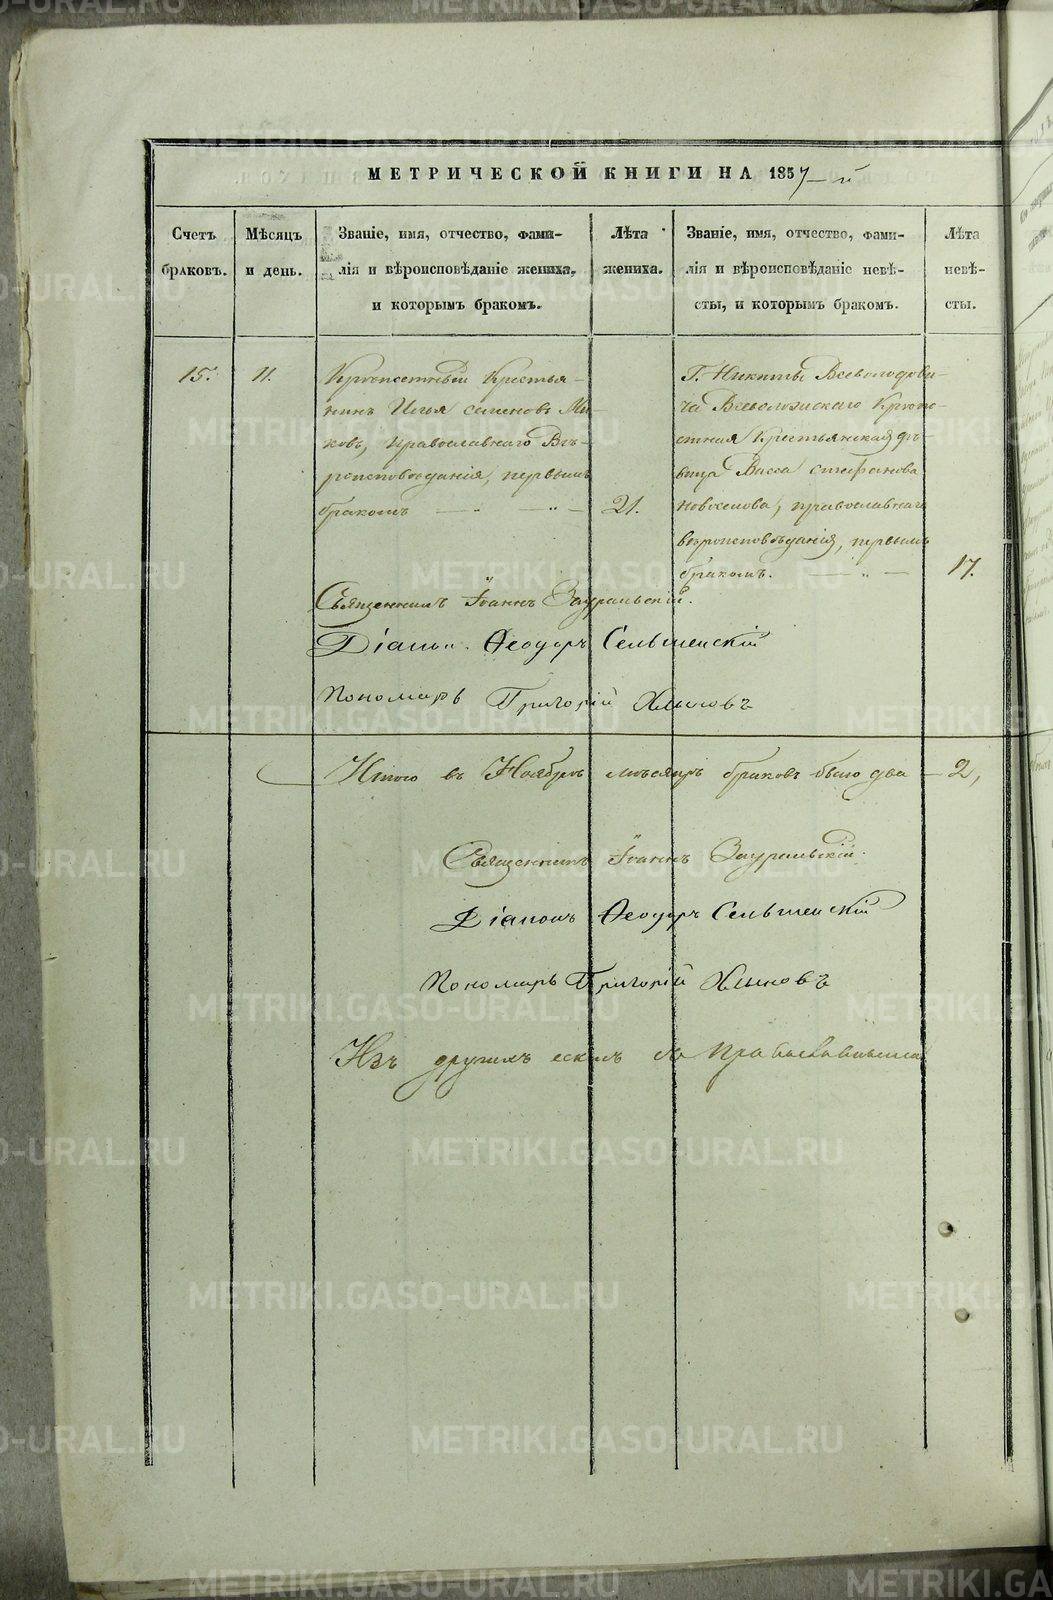 МЕТРИЧЕСКОЙ КНИГИ НА 1857-й
Счетъ
браковъ.
Мѣсяцъ
и день.
Званіе, имя, отчество, фами-
лія и вѣроисповѣданіе жениха,
и которымъ бракомъ.
Лѣта
жениха.
Званіе, имя, отчество, фами-
лія и вѣроисповѣданіе невѣ-
сты, и которымъ бракомъ.
Лѣта
невѣ-
сты.
15.
11.
Крѣпостный Крестья-
нинъ Илья Семеновъ
православнаго Вѣ-
роисповѣданія, первымъ
бракомъ
21.
Г. Никиты Всеволодови-
ча Всеволожскаго Крѣпо-
стная Крестьянская дѣ-
вица Васса Стефанова
Новоселова, православнаго
вѣроисповѣданія, первымъ
бракомъ.
17.
Священникъ Іоаннъ Зауральскій.
Діаконъ Ѳеодоръ Селвменскій
Пономарь Григорій Хлыновъ
Итого въ Ноябрѣ мѣсяцѣ браковъ было два - 2,
Священникъ Іоаннъ Зауральскій.
Діаконъ Ѳеодоръ Селвменскій
Пономарь Григорій Хлыновъ
METRIKI.GASO-URAL.RU